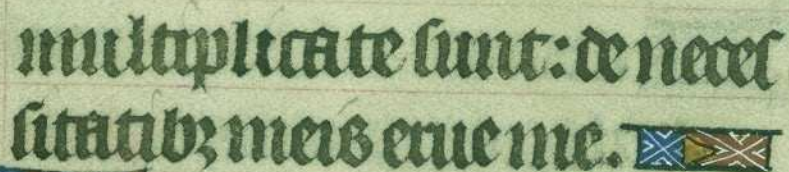 multiplicate sunt: de neces
sitatibꝫ meis erue me.